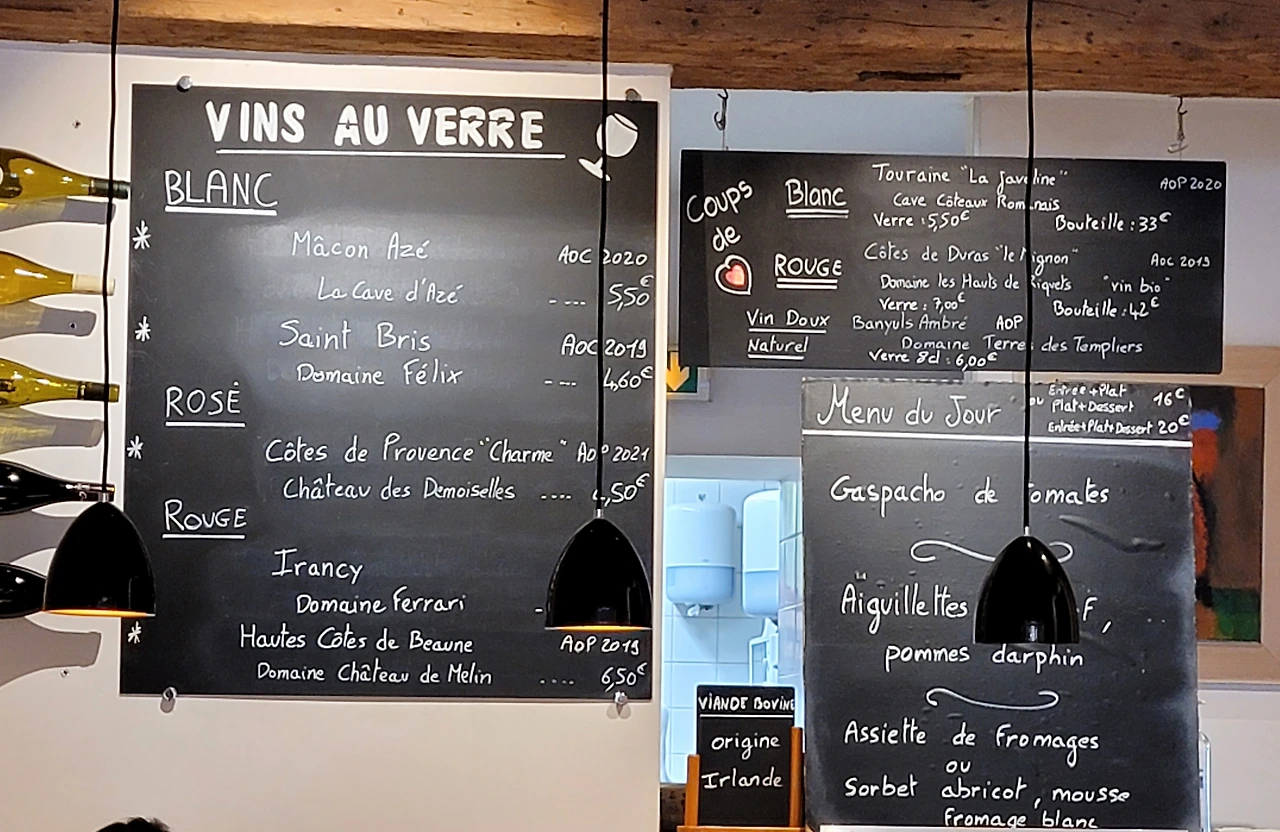 VINS AU VERRE
BLANC
* Mâcon Azé AOC 2020
La Cave d'Azé ---- 5,50€
* Saint Bris AOC 2019
Domaine Félix --- 4,60€
ROSÉ
* Côtes de Provence "Charme" AOP 2021
Château des Demoiselles .... ,50€
ROUGE
Irancy
Domaine Ferrari
* Hautes Côtes de Beaune AOP 2019
Domaine Château de Melin .... 6,50€
Coups de
Blanc Touraine "La Javeline" AOP 2020
Cave Côteaux Romanais
Verre : 5,50€ Bouteille : 33€
ROUGE Côtes de Duras "le Mignon" AOC 2019
Domaine les Hauts de Riquets "vin bio"
Verre : 7,00€ Bouteille : 42€
Vin Doux Naturel Banyuls Ambré AOP
Domaine Terres des Templiers
Verre 8cl : 6,00€
Menu du Jour
ou Entrée+Plat
Plat+Dessert 16€
Entrée+Plat+Dessert 20€
Gaspacho de Tomates
Aiguillettes
pommes darphin
Assiette de Fromages
ou
Sorbet abricot, mousse
fromage blanc
VIANDE BOVINE
origine
Irlande